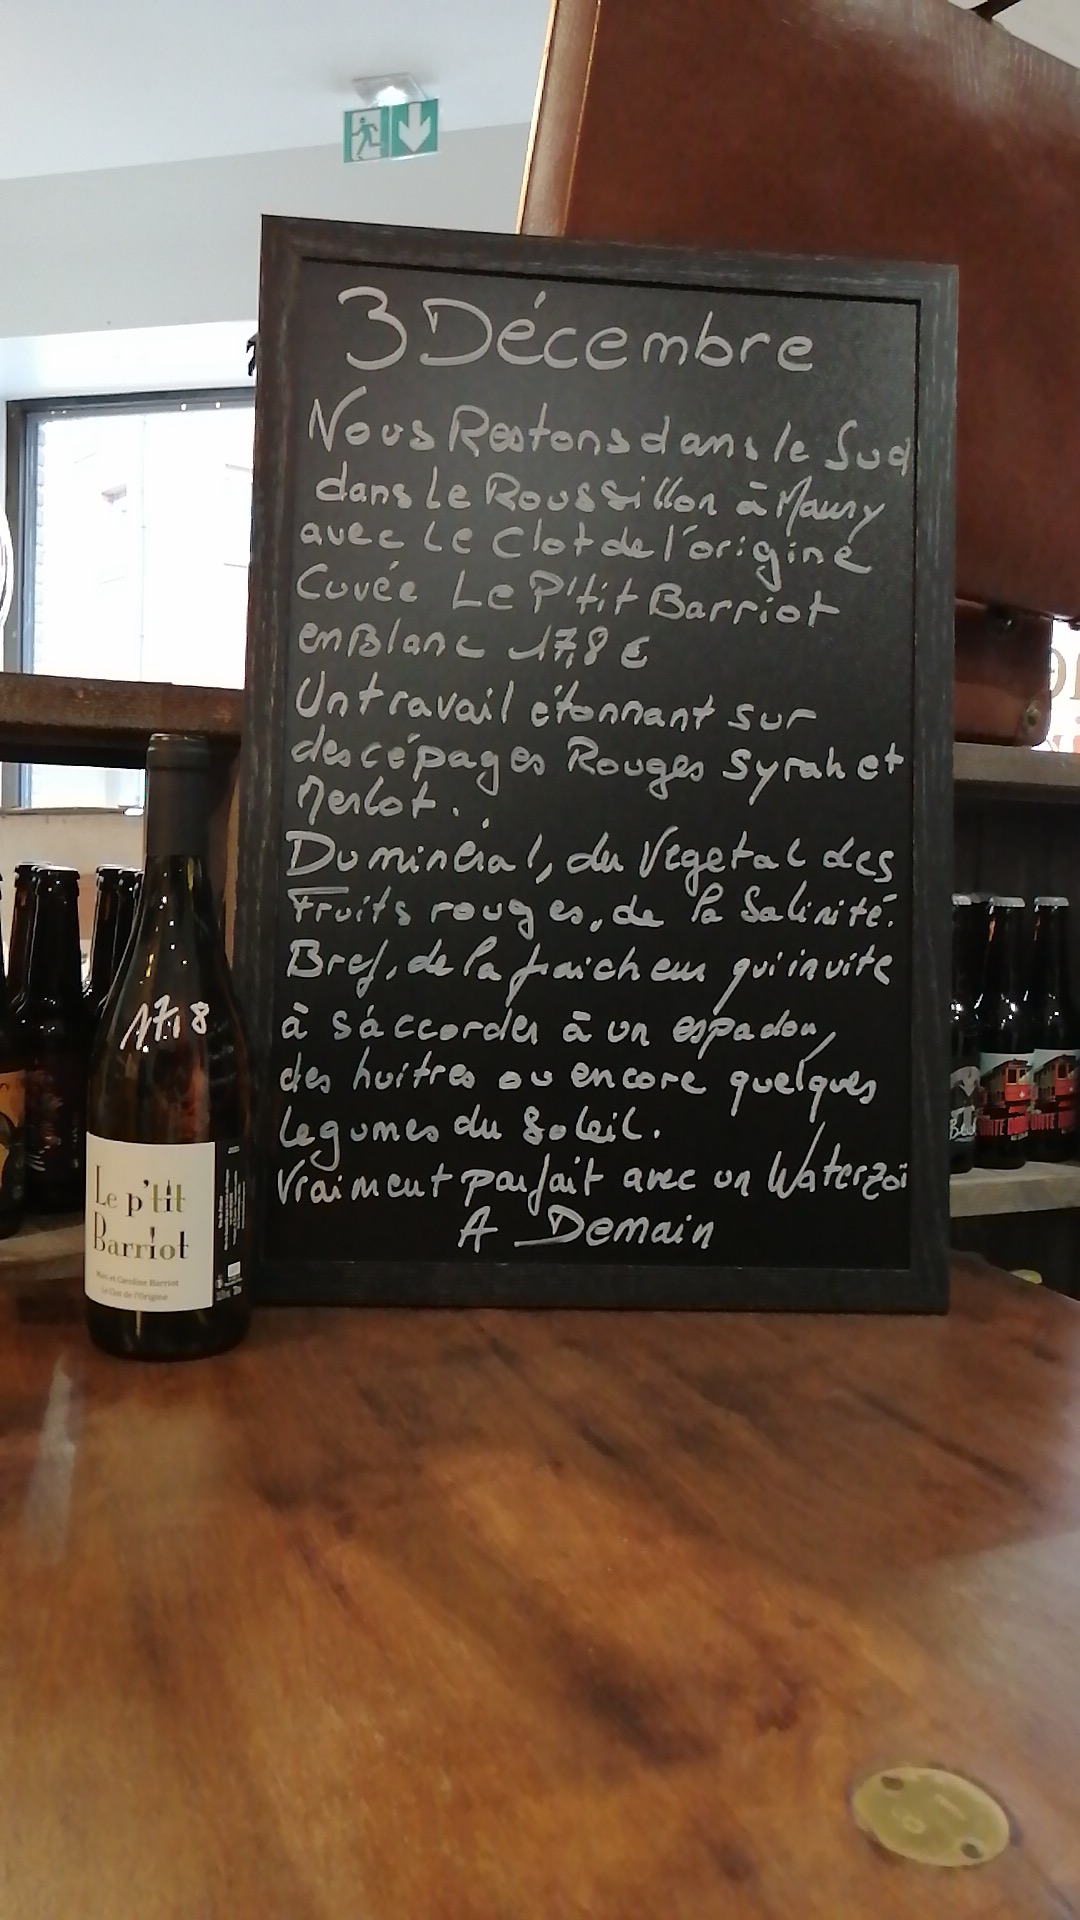 3 Décembre
Nous Restons dans le Sud
dans Le Roussillon à Maury
avec Le Clot de l'origine
Cuvée Le P'tit Barriot
en Blanc 17,8 €
Un travail étonnant sur
des cépages Rouges Syrah et
Merlot.
Du minéral, du Végétal des
Fruits rouges, de la Salinité.
Bref, de la fraicheur qui invite
à s'accorder à un espadon,
des huitres ou encore quelques
legumes du Soleil.
Vraiment parfait avec un Waterzoï
A Demain
17,8
Le p'tit
Barriot
Marc et Caroline Barriot
Le Clot de l'Origine